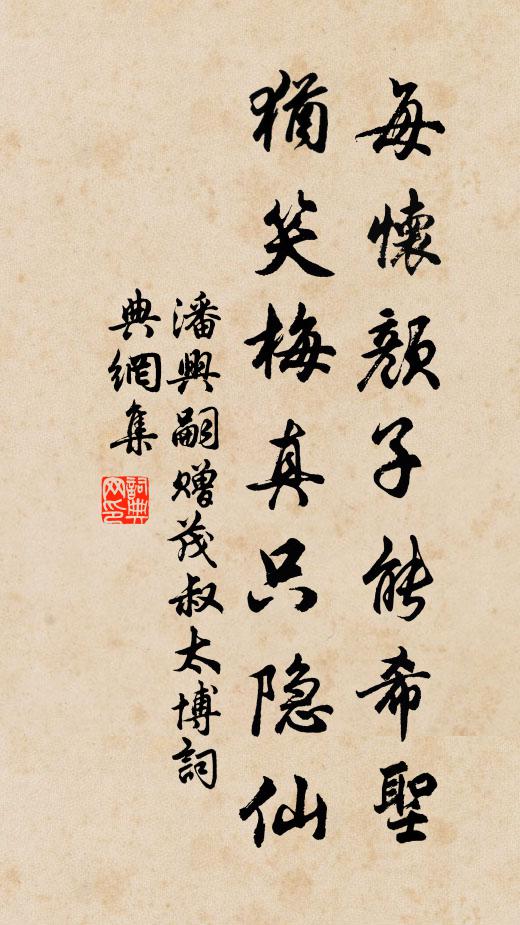 每懷顏子能希聖
猶笑梅真只隐仙
潘興嗣贈茂叔太博詞
典網集
詞典网印